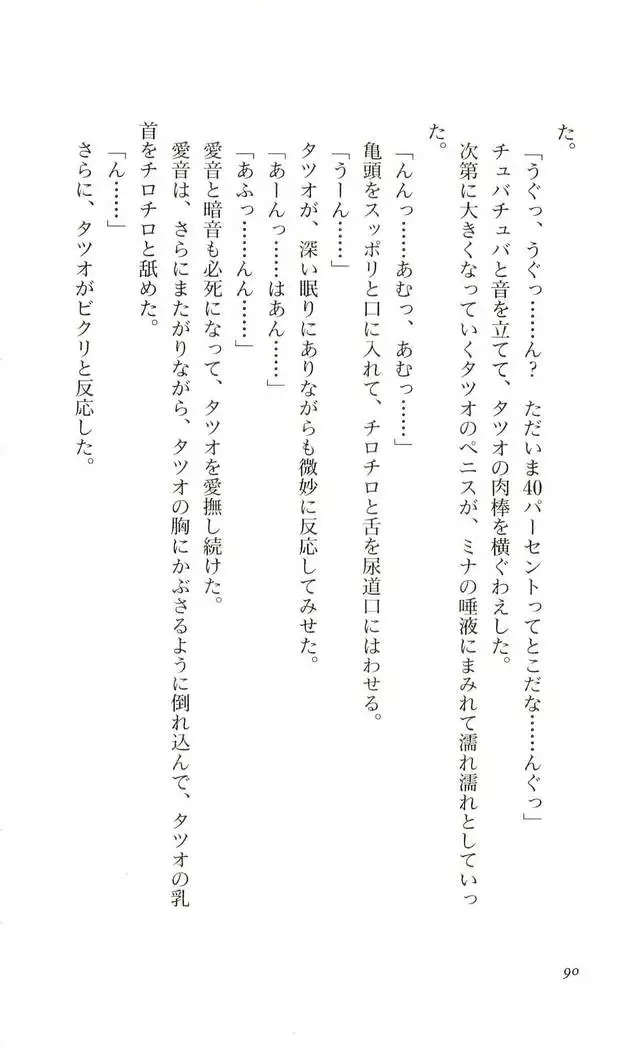 た。
「うぐっ、うぐっ……ん？　ただいま40パーセントってとこだな……んぐっ」
チュバチュバと音を立てて、タツオの肉棒を横ぐわえした。
次第に大きくなっていくタツオのペニスが、ミナの唾液にまみれて濡れ濡れとしていっ
た。
「んんっ……あむっ、あむっ……」
亀頭をスッポリと口に入れて、チロチロと舌を尿道口にはわせる。
「うーん……」
タツオが、深い眠りにありながらも微妙に反応してみせた。
「あーんっ……はあん……」
「あふっ……んん……」
愛音と暗音も必死になって、タツオを愛撫し続けた。
愛音は、さらにまたがりながら、タツオの胸にかぶさるように倒れ込んで、タツオの乳
首をチロチロと舐めた。
「ん……」
さらに、タツオがビクリと反応した。
90